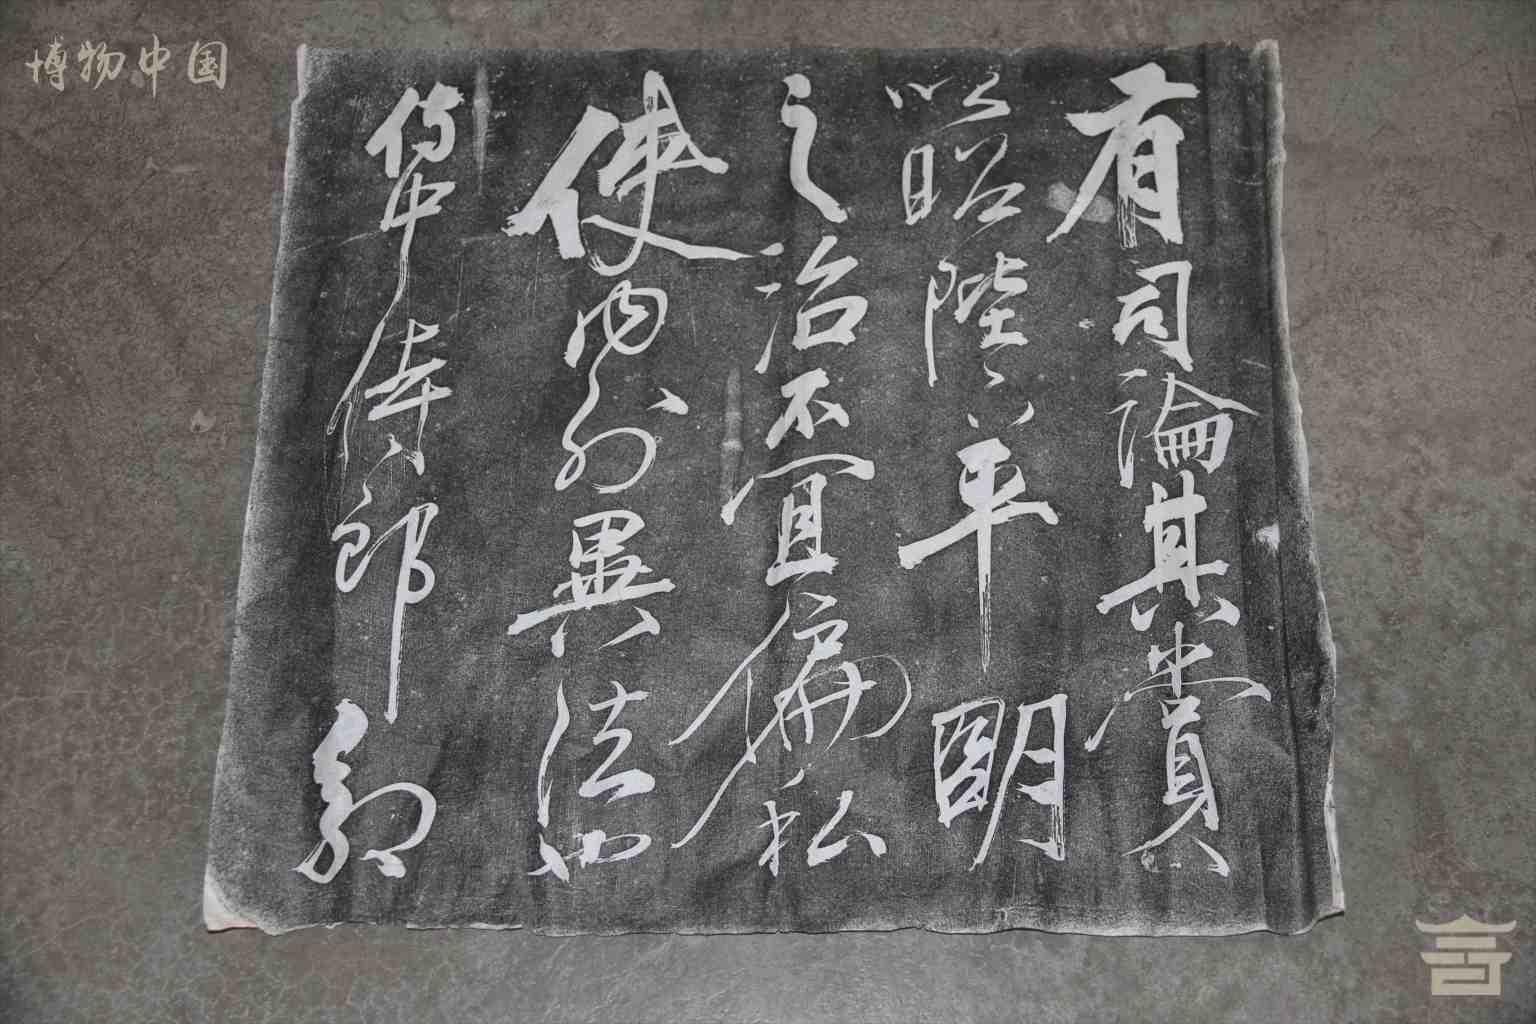 博物中国
有司論其賞
以昭陛下平明
之治不宜偏私
使内外異法也
侍中侍郎郭